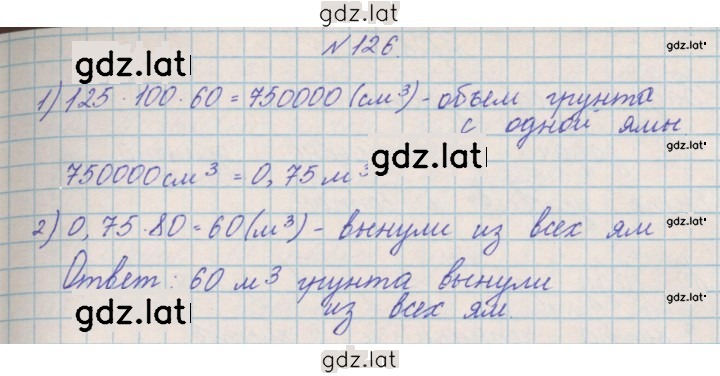 gdz.lat
№126.
gdz.lat
gdz.lat
1) 125 · 100 · 60 = 750000 (см³) - объем грунта
с одной ямы
gdz.lat
750000 см³ = 0,75 м³
gdz.lat
2) 0,75 · 80 = 60 (м³) - вынули из всех ям
Ответ: 60 м³ грунта вынули
gdz.lat
из всех ям.
gdz.lat
gdz.lat